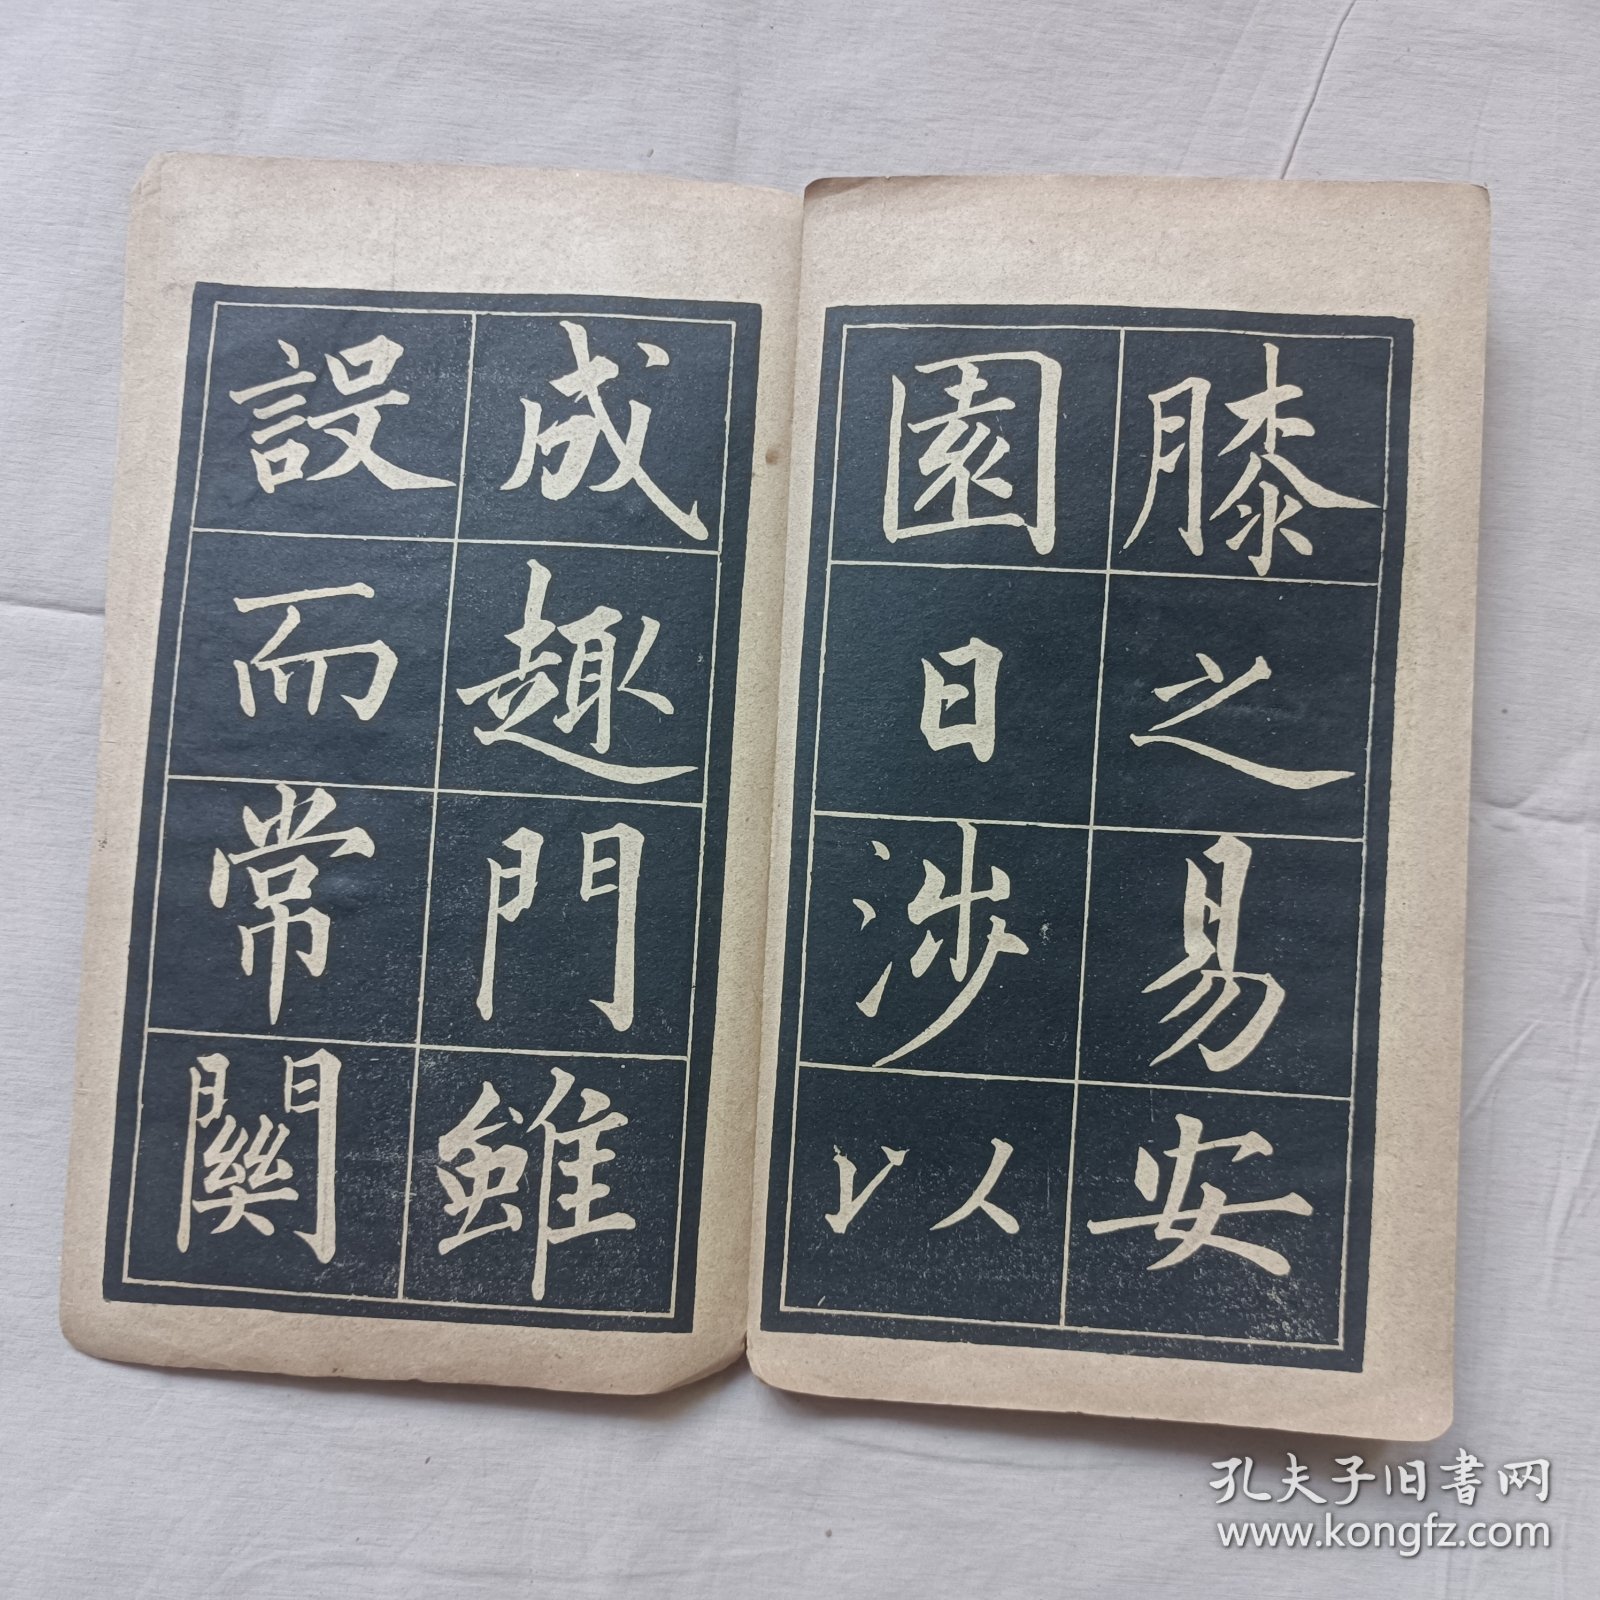 膝之易安
園日涉以
成趣門雖
設而常關
孔夫子旧书网
www.kongfz.com